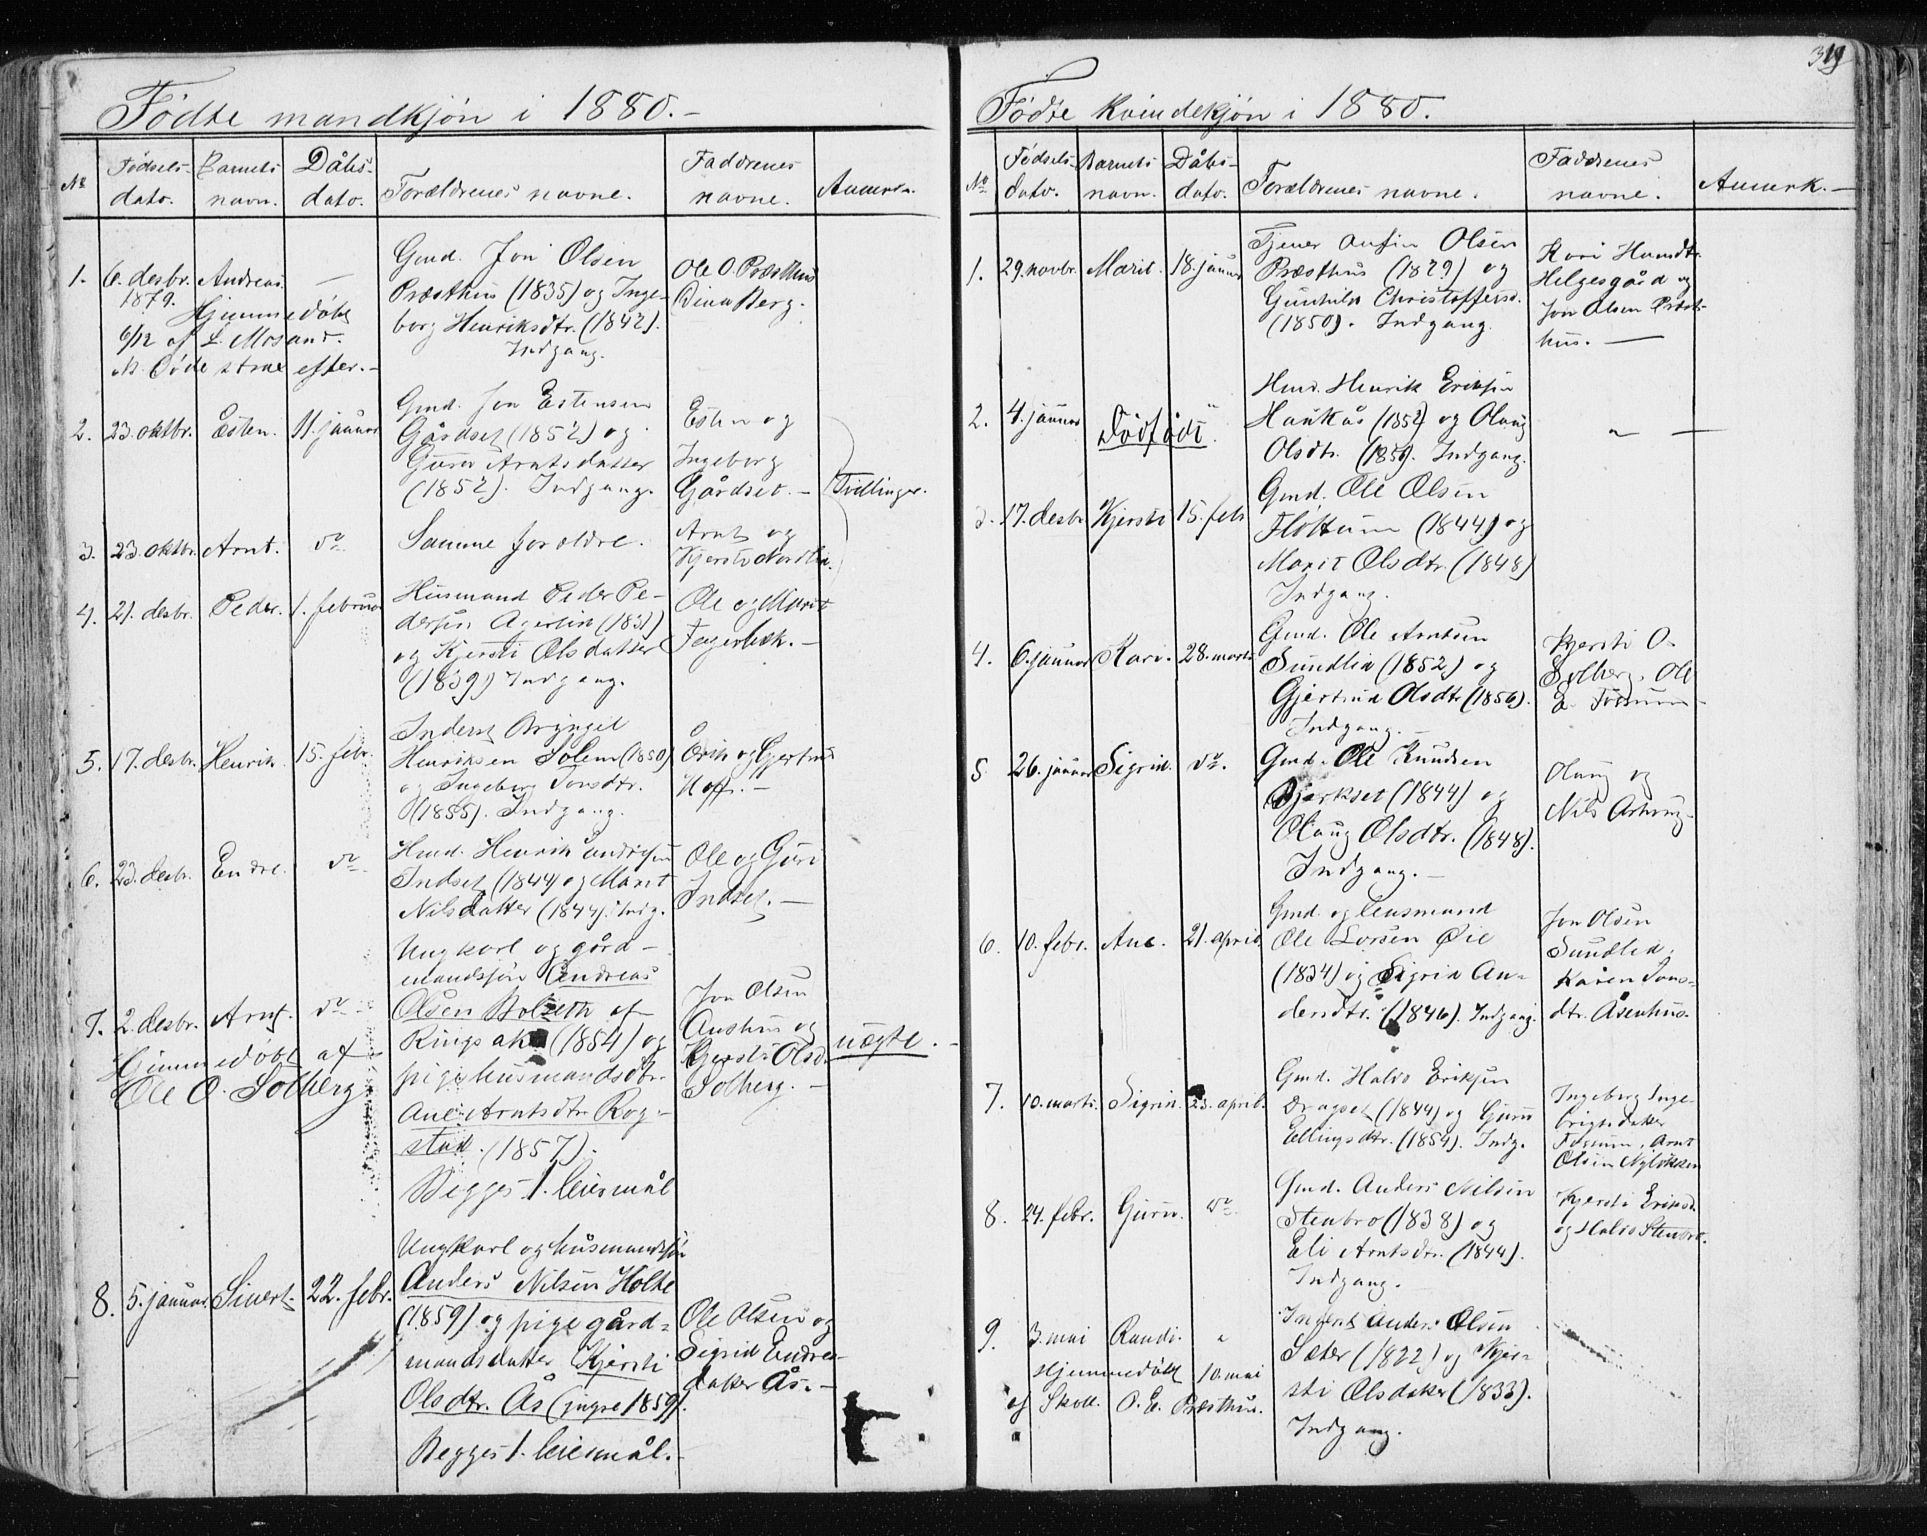 Fødte mandkjøn i 1880.-
No
Fødsels-
dato.
Barnets
navn.
Dåbs-
dato.
Forældrenes navne.
Faddrenes
navne.
Anmerkn.
1. 6. desbr. Andreas. —
1879. Hjemmedøbt
6/12 af L. Mosand.
Døde strax efter.-
Gmd. Jon Olsen
Præsthus (1835) og Inge-
borg Henriksdtr. (1842).
Indgang.
Ole O. Præsthus
Berg.
2. 23. oktbr. Esten. 11. januar
Gmd. Jon Estensen
Gårdset (1852) og
Guru Arntsdatter
(1852). Indgang.
Esten og
Ingeborg
Gårdset.-
Tvillinger.
3. 23. oktbr. Arnt. do
Samme forældre.
Arnt og
Kjersti Nordli
4. 21. desbr. Peder. 1. februar
Husmand Peder Pe-
dersen (1831)
og Kjersti Olsdatter
(1839) Indgang.
Ole og Marit
Fagerbek.-
5. 17. desbr. Henrik. 15. febr.
Inderst Brynjel
Henriksen Solem (1850)
og Ingeborg Jonsdtr.
(1855). Indgang.
Erik og Gjertrud
Hoff.-
6. 23. desbr. Endre. do
Hmd. Henrik Endresen
Indset (1844) og Marit
Nilsdatter (1844). Indg.
Ole og Guri
Indset.-
7. 2. desbr. Arnt. do
Hjemmedøbt af
Ole O. Solberg
Ungkarl og gård-
mandssøn Andreas
Olsen Bolseth af
Ringsaker (1854) og
pige husmandsdtr.
Ane Arntsdtr. Rog-
stad. (1857).
Begges 1. leiermål
Jon Olsen
Aushus og
Kjersti Olsd.
Solberg.-
uægte.
8. 5. januar. Sivert. 22. febr.
Ungkarl og husmandssøn
Anders Nilsen Holte
(1859) og pige gård-
mandsdatter Kjersti
Olsdtr. Ås (yngre 1859).
Begges 1. leiermål.
Ole Olsen og
Sigrid Endres-
datter Ås.-
319
Fødte kvindekjøn i 1880.
No
Fødsels-
dato.
Barnets
navn.
Dåbs-
dato.
Forældrenes navne.
Faddrenes
navne.
Anmerk.-
1. 29. novbr. Marit. 18. januar
Tjener Anfin Olsen
Præsthus (1829) og
Gunhild Christoffersd.
(1850). Indgang.
Kari
Helgesgård og
Jon Olsen Præst-
hus.—
2. 4. januar Dødfødt.
Hmd. Henrik Eriksen
Haukås (1852) og Olaug
Olsdtr. (1850. Indgang.
" —
3. 17. desbr. Kjersti 15. febr.
Gmd. Ole Olsen
Fløttum (1844) og
Marit Olsdtr. (1848)
Indgang.
4. 6. januar Kari. 28. marts
Gmd. Ole Arntsen
Sundlia (1852) og
Gjertrud Olsdtr (1856).
Indgang.-
Kjersti O.
Solberg, Ole
E. Fossum
5. 26. januar Sigrid. do.
Gmd. Ole Knudsen
Bjerkset (1844) og
Olaug Olsdtr. (1848).
Indgang.-
Olaug og
Nils
6. 10. febr. Ane. 21. april
Gmd. og lensmand
Ole Larsen Øie
(1834) og Sigrid An-
dersdtr. (1846). Indgang.
Jon Olsen
Sundlia,
Karen Jons-
dtr. Åsenhus.
7. 10. marts. Sigrid. 23. april.
Gmd. Halvo Eriksen
Dragset (1844) og Guru
Ellingsdtr. (1854). Indg.
Ingeborg Inge-
brigtsdatter
Fossum, Arnt
Olsen Nyløkken
8. 24. febr. Guru. do
Gmd. Anders Nilsen
Stenbro (1838) og
Eli Arntsdtr. (1844).
Indgang.
Kjersti Eriksd.
og Halvo Stenbro.
9. 3. mai Randi. "
Hjemmedøbt 10. mai
af Skoll. O. E. Præsthus.
Inderst Anders Olsen
Sæter (1822) og Kjer-
sti Olsdatter (1833).
Indgang.